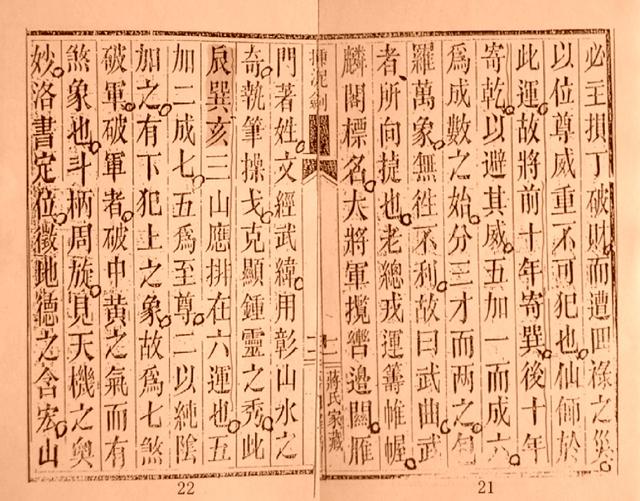 必主損丁破財而遭囬祿之災
以位尊威重不可犯也仙師於
此運故將前十年寄巽後十年
寄乾以避其威五加一而成六
爲成數之始分三才而两之包
羅萬象無徃不利故曰武曲武
者所向捷也老總戎運籌帷幄
麟閣標名大將軍攬轡邊關雁
蔣氏家藏
門著姓文經武緯用彰山水之
奇執筆操戈克顯鍾靈之秀此
辰巽亥三山應排在六運也五
加二成七五爲至尊二以純陰
加之有下犯上之象故爲七煞
破軍破軍者破中黃之氣而有
煞象也斗柄周旋見天機之奥
妙洛書定位徵地德之含宏山
21
22